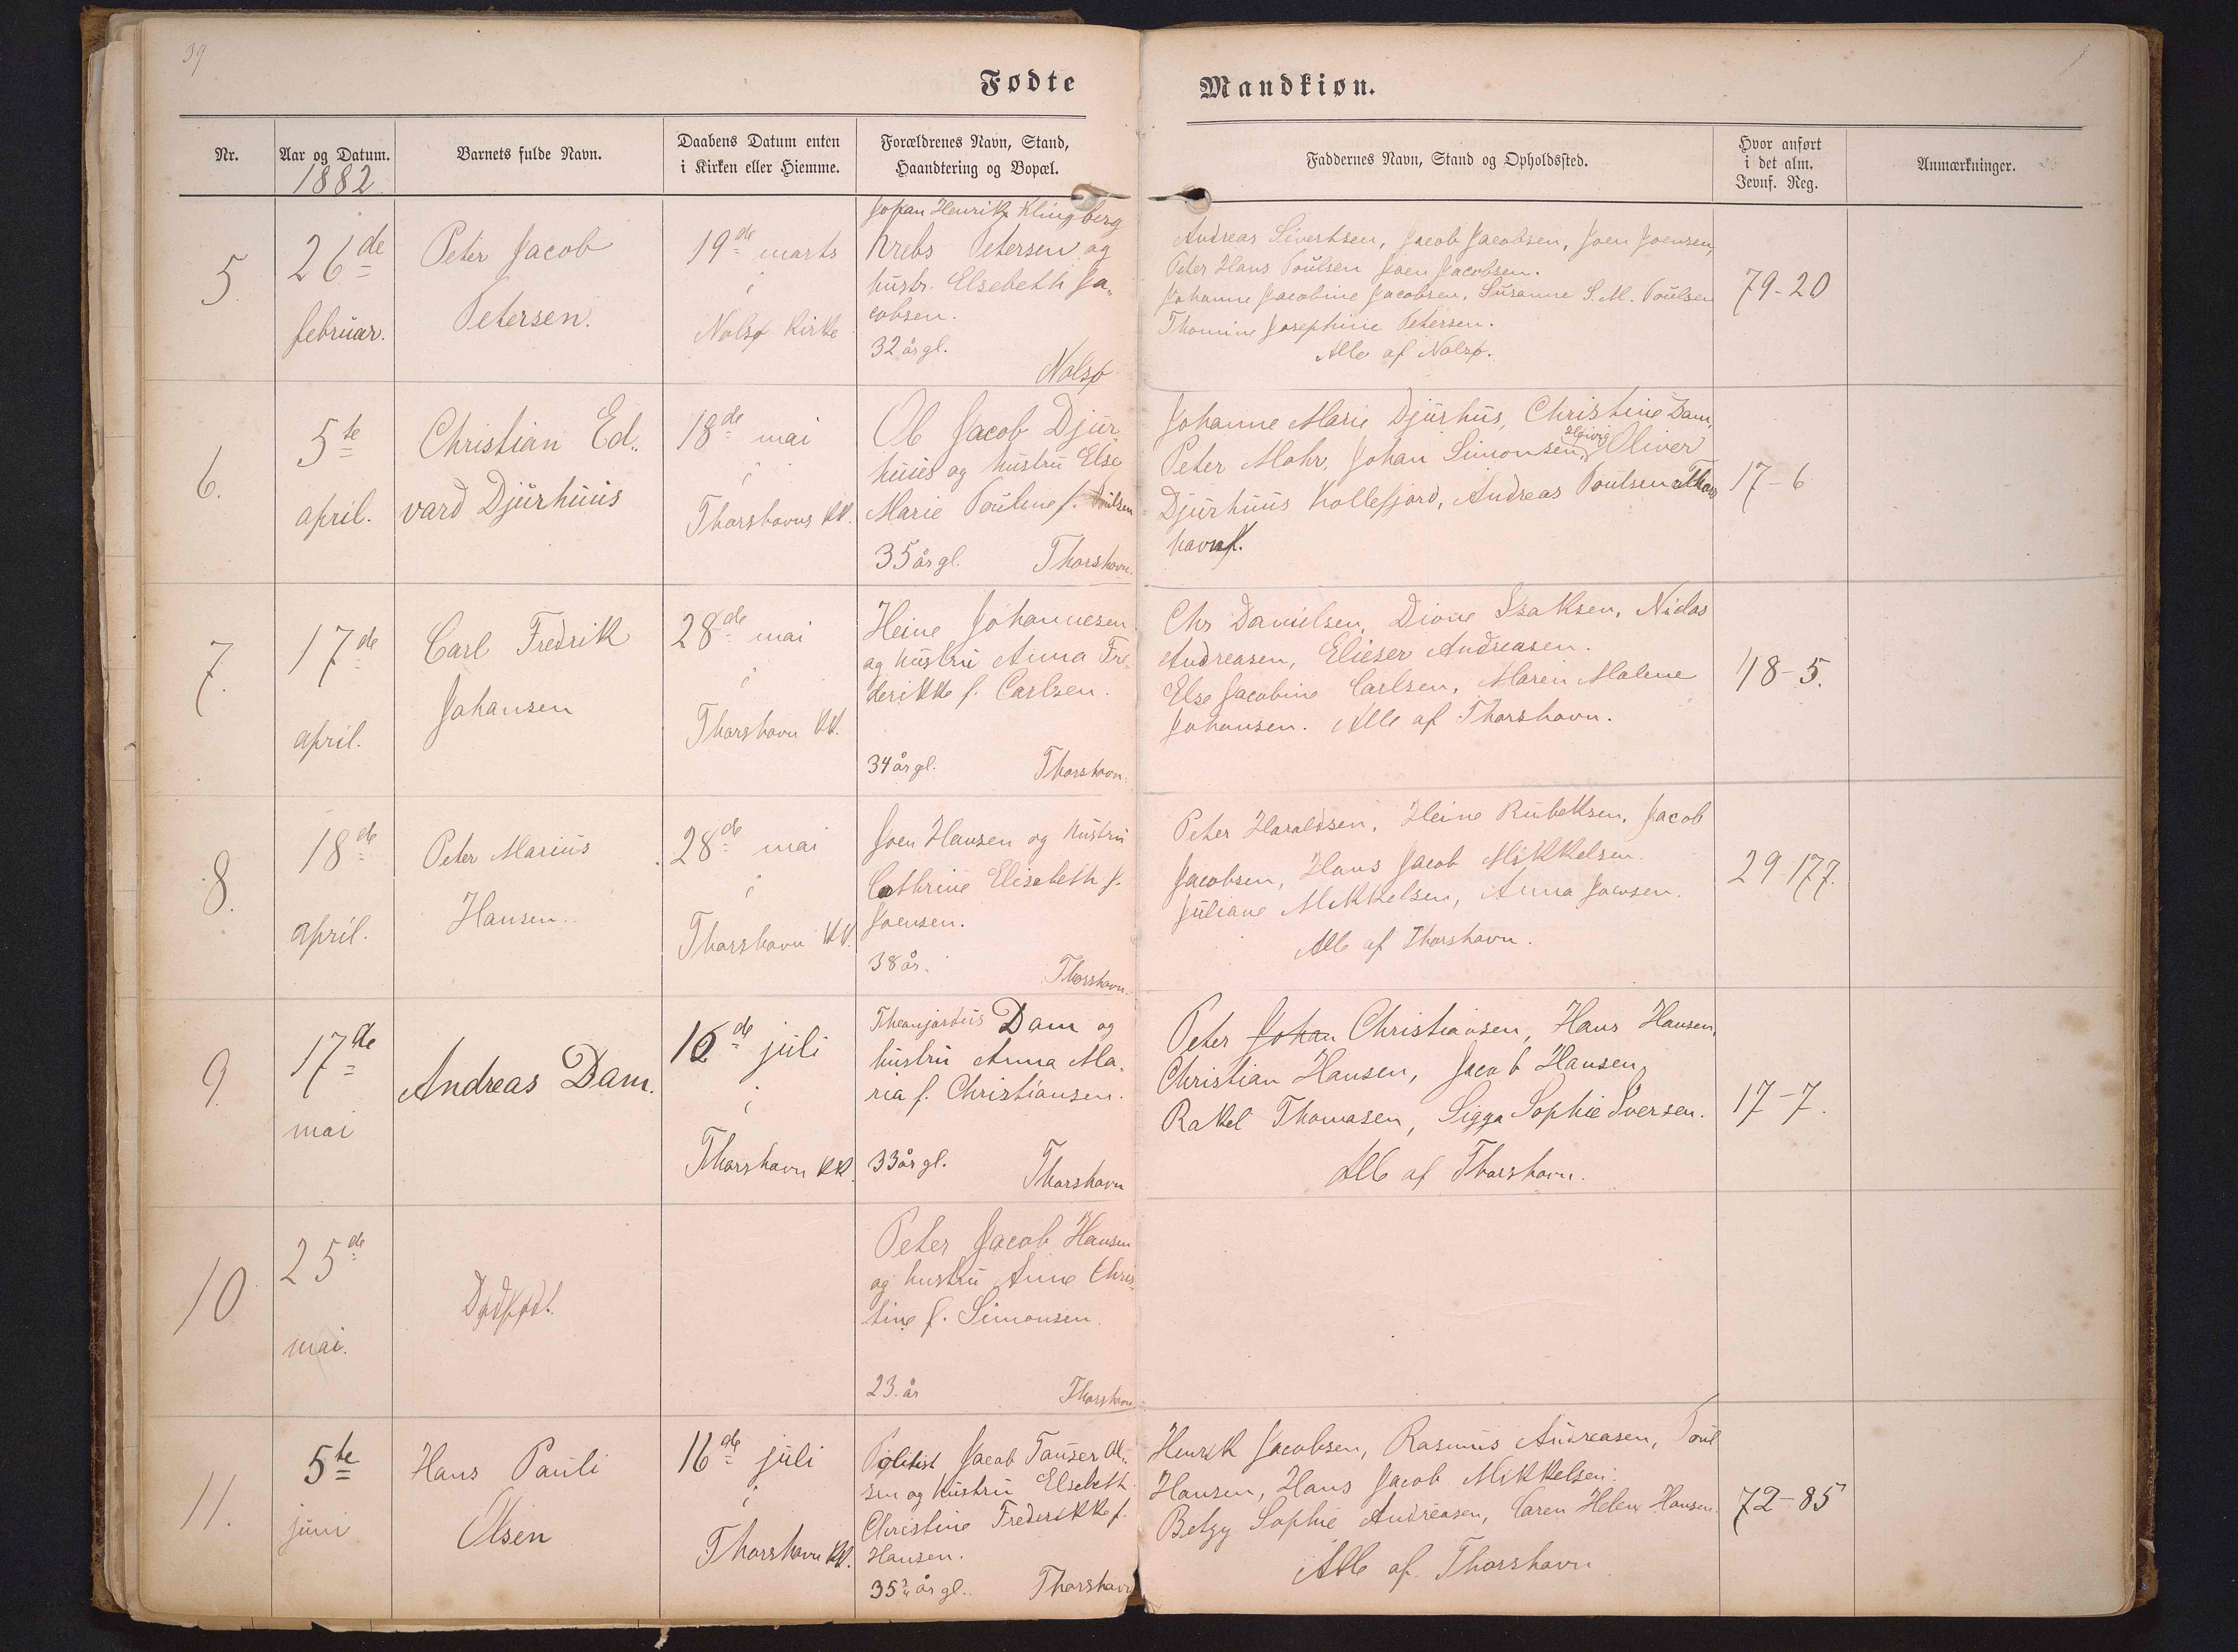 39
Fødte
Mandkiøn.
Nr.
Aar og Datum.
1882
Barnets fulde Navn.
Daabens Datum enten
i Kirken eller Hiemme.
Forældrenes Navn, Stand,
Haandtering og Bopæl.
Faddernes Navn, Stand og Opholdssted.
Hvor anført
i det alm.
Jevnf. Reg.
Anmærkninger.
5
26de
februar.
Peter Jacob
Petersen.
19de marts
i
Nolsø Kirke
Johan Henrik Klingberg
Krebs Petersen og
hustr. Elsebeth Ja„
cobsen.
32 år gl.
Nolsø
Andreas Sivertsen, Jacob Jacobsen, Joen Joensen,
Peter Hans Poulsen Joen Jacobsen.
Johanne Jacobine Jacobsen, Susanne S. M. Poulsen
Thomine Josephine Petersen.
Alle af Nolsø.
79-20
6.
5te
april.
Christian Ed„
vard Djurhuus
18de mai
i
Thorshavns KK.
Ole Jacob Djur
huus og hustru Else
Marie Pouline f. Poulsen
35 år gl. Thorshavn.
Johanne Marie Djurhus, Christine Dam,
Peter Mohr, Johan Simonsen, Oliver
Djurhuus Kollefjord, Andreas Poulsen Thors
havn.
17-6
7.
17de
april.
Carl Fredrik
Johansen
28de mai
i
Thorshavn KK.
Heine Johannesen
og hustru Anna Fre„
derikke f. Carlsen.
34 år gl. Thorshavn.
Chr Danielsen, Dione Isaksen, Niclas
Andreasen, Elieser Andreasen.
Else Jacobine Carlsen, Maren Malene
Johansen. Alle af Thorshavn.
48-5.
8.
18de
april.
Peter Marius
Hansen.
28de mai
i
Thorshavn KK.
Joen Hansen og hustru
Cathrine Elisebeth f.
Joensen.
38 år. Thorshavn.
Peter Haraldsen, Heine Rubeksen, Jacob
Jacobsen, Hans Jacob Mikkelsen.
Juliane Mikkelsen, Anna Joensen.
Alle af Thorshavn.
29-177.
9.
17de
mai
Andreas Dam.
16de juli
i
Thorshavn KK.
Dam og
hustru Anna Ma„
ria f. Christiansen.
33 år gl. Thorshavn
Peter Johan Christiansen, Hans Hansen,
Christian Hansen, Jacob Hansen,
Rakel Thomasen, Sigga Sophie Iversen.
Alle af Thorshavn.
17-7.
10
25de
mai.
Dødfødt.
Peter Jacob Hansen
og hustru Anne Chris„
tine f. Simonsen.
23. år Thorshavn
11.
5te
juni
Hans Pauli
Olsen
16de juli
i
Thorshavn KK.
Politist Jacob Tauser Ol„
sen og hustru Elsebeth
Christine Frederikke f.
Hansen.
35 år gl. Thorshavn
Henrik Jacobsen, Rasmus Andreasen, Poul
Hansen, Hans Jacob Mikkelsen.
Betzy Sophie Andreasen, Caren Helene Hansen.
Alle af Thorshavn
72-85